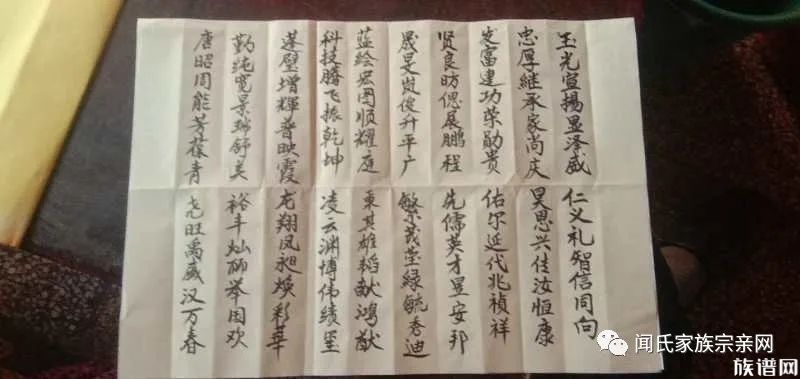 玉光宣揚显泽威
仁义礼智信同向
忠厚継承家尚庆
昊思兴佳汝恒康
发富建功荣勋贵
佑尔延代兆祯祥
贤良昉偲展鹏程
先儒英才昱安邦
晟旻岚俊升平广
繁茂莹緑毓秀迪
蓝绘宏图顺耀庭
秉其雄韬献鸿猷
科技腾飞振乾坤
凌云渊博伟绩
蓬璧增輝普映霞
龙翔凤昶焕彩華
勤纯宽景瑞舒美
裕丰灿炳举国欢
唐昭周能芳葆青
尧旺禹盛汉万春
闻氏家族宗亲网
族谱网